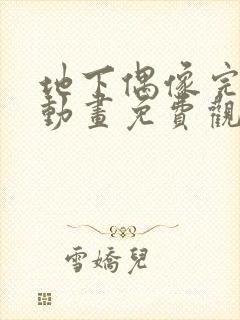 地下偶像完
動畫免費觀
雪嬌兒